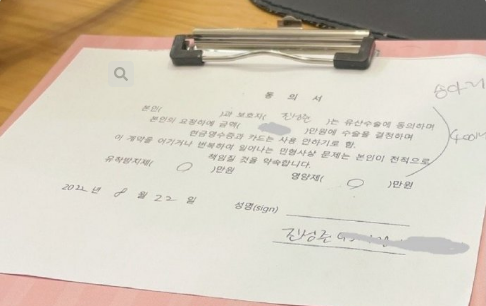 동 의 서
본인( )과 보호자( 진성준 )는 유산수술에 동의하며
본인의 요청하에 금액( )만원에 수술을 결정하며
현금영수증과 카드는 사용 안하기로 함.
이 계약을 어기거나 번복하여 일어나는 민형사상 문제는 본인이 전적으로
책임질 것을 약속합니다.
유착방지제( O )만원 영양제( O )만원
2022년 8월 22일 성명(sign)
진성준